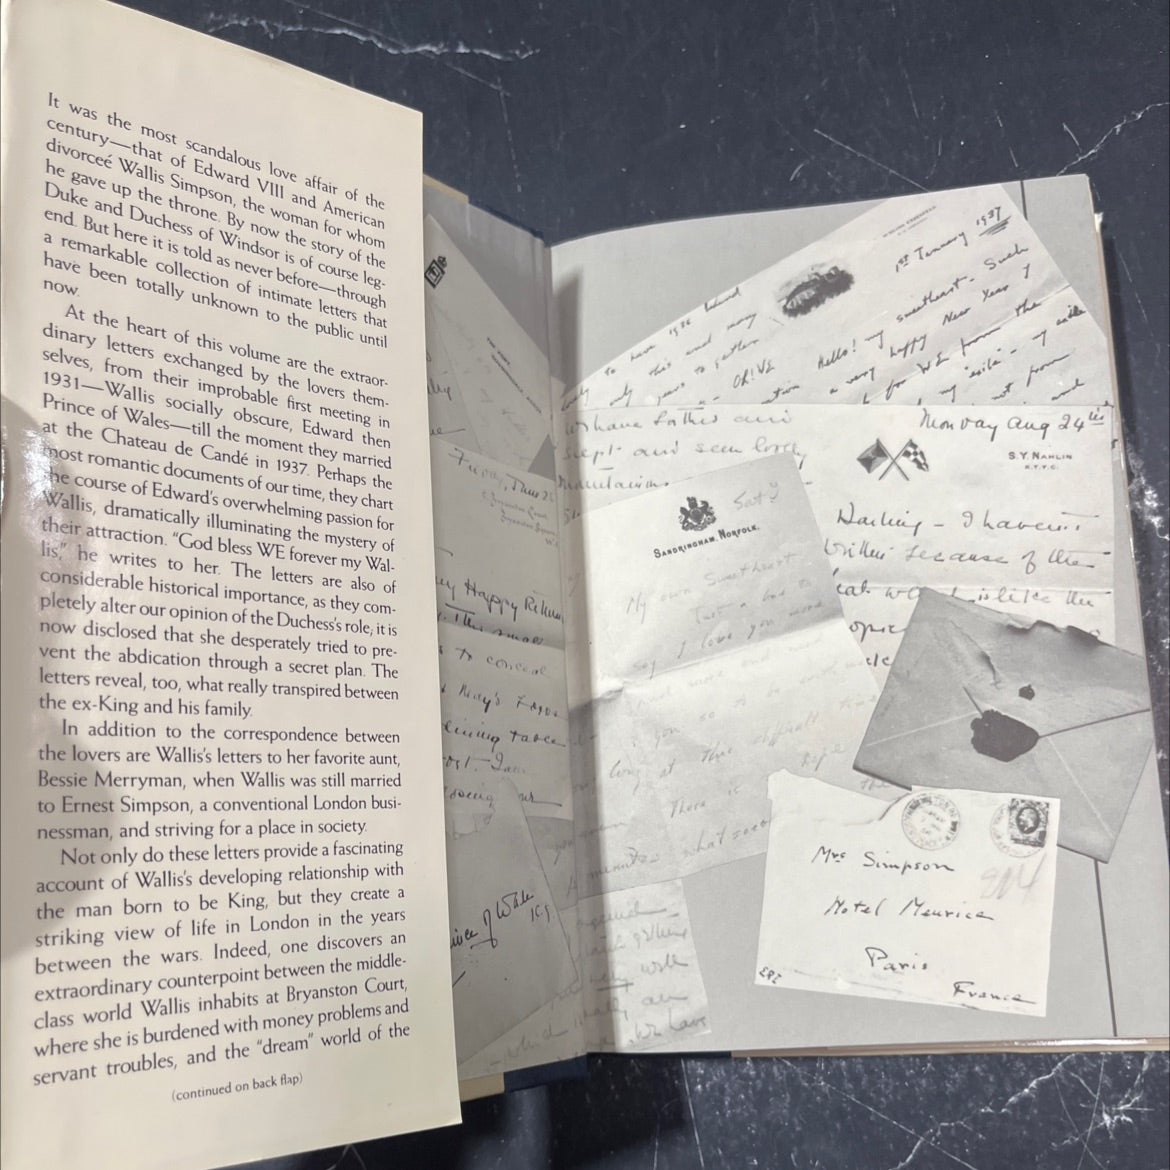 It was the most scandalous love affair of the
century—that of Edward VIII and American
divorceé Wallis Simpson, the woman for whom
he gave up the throne. By now the story of the
Duke and Duchess of Windsor is of course leg-
end. But here it is told as never before—through
a remarkable collection of intimate letters that
have been totally unknown to the public until
now.
At the heart of this volume are the extraor-
dinary letters exchanged by the lovers them-
selves, from their improbable first meeting in
1931—Wallis socially obscure, Edward then
Prince of Wales—till the moment they married
at the Chateau de Candé in 1937. Perhaps the
most romantic documents of our time, they chart
the course of Edward's overwhelming passion for
Wallis, dramatically illuminating the mystery of
their attraction. "God bless WE forever my Wal-
lis," he writes to her. The letters are also of
considerable historical importance, as they com-
pletely alter our opinion of the Duchess's role; it is
now disclosed that she desperately tried to pre-
vent the abdication through a secret plan. The
letters reveal, too, what really transpired between
the ex-King and his family.
In addition to the correspondence between
the lovers are Wallis's letters to her favorite aunt,
Bessie Merryman, when Wallis was still married
to Ernest Simpson, a conventional London busi-
nessman, and striving for a place in society.
Not only do these letters provide a fascinating
account of Wallis's developing relationship with
the man born to be King, but they create a
striking view of life in London in the years
between the wars. Indeed, one discovers an
extraordinary counterpoint between the middle-
class world Wallis inhabits at Bryanston Court,
where she is burdened with money problems and
servant troubles, and the "dream" world of the
(continued on back flap)
1st January 1937
Hello! my sweetheart - Such
a very happy New Year
for WE from the
my 'exile' - my
not from
to have
only this and many
years to gether
Oh! WE
Monday Aug 24th
S.Y. NAHLIN
R.T.Y.C.
Darling - I haven't
written because of the
heat which is like the
and seen lovely
mountains
Sandringham, Norfolk.
My own Sweetheart
Just a line to
say I love you more
and more
this difficult time
There is
Happy
This small
to conceal
table
of Wales
KG
Mrs Simpson
Hotel Meurice
Paris
France